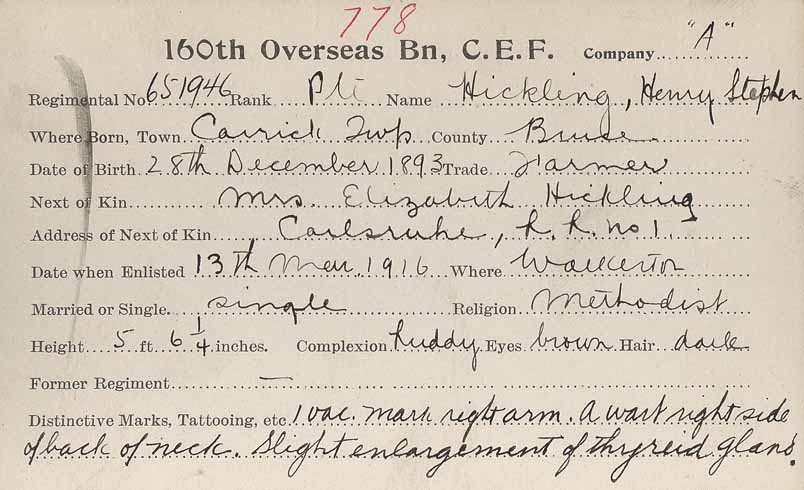 778
160th Overseas Bn, C.E.F. Company "A"
Regimental No 651946 Rank Pte Name Hickling, Henry Stephen
Where Born, Town Carrick Twp County Bruce
Date of Birth 28th December 1893 Trade Farmer
Next of Kin Mrs. Elizabeth Hickling
Address of Next of Kin Carlsruhe, R. R. no 1
Date when Enlisted 13th Mar. 1916 Where Walkerton
Married or Single. single Religion Methodist
Height 5 ft 6 1/4 inches. Complexion Ruddy Eyes brown Hair dark
Former Regiment —
Distinctive Marks, Tattooing, etc. 1 vac. mark right arm. A wart right side
of back of neck. Slight enlargement of thyreid gland.